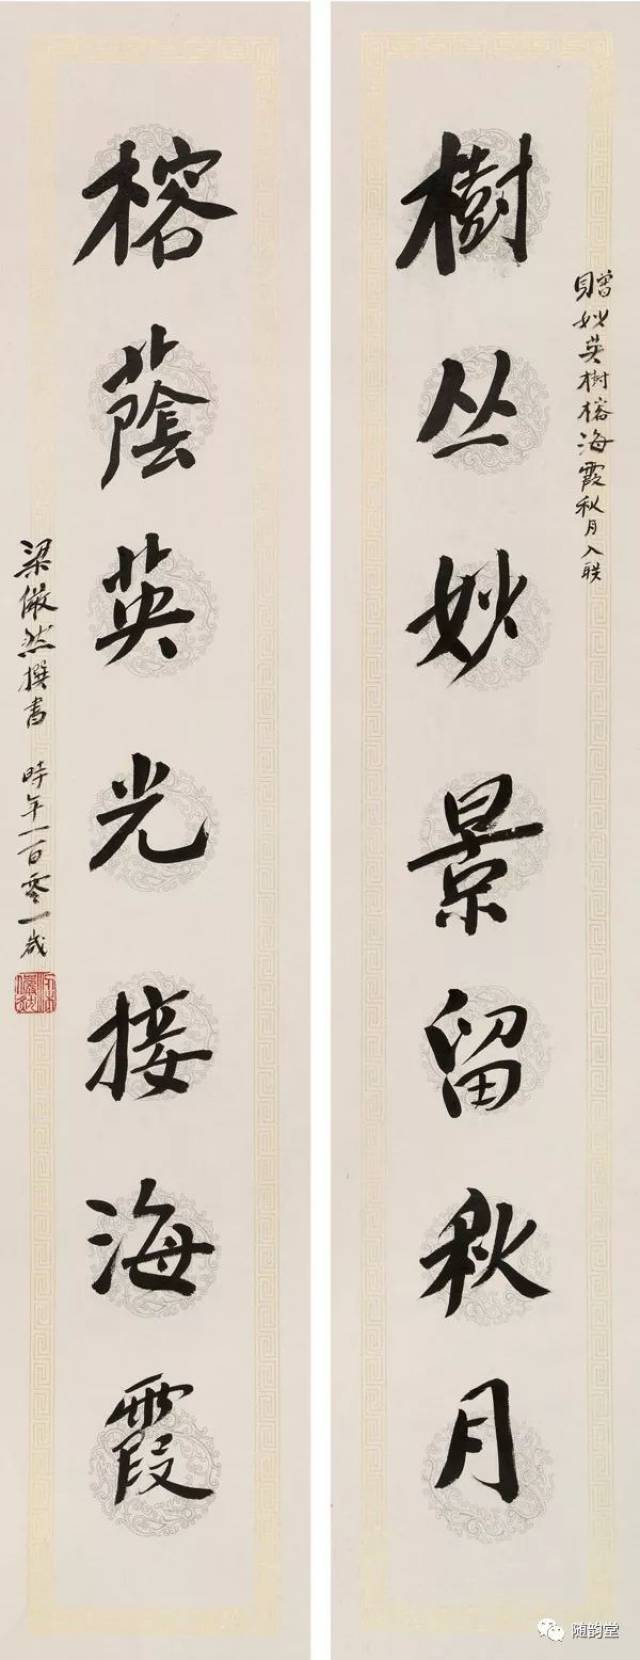 贈妙英樹榕海霞秋月入联
樹丛妙景留秋月
榕蔭英光接海霞
梁儼然撰書 時年一百零一歲
随韵堂